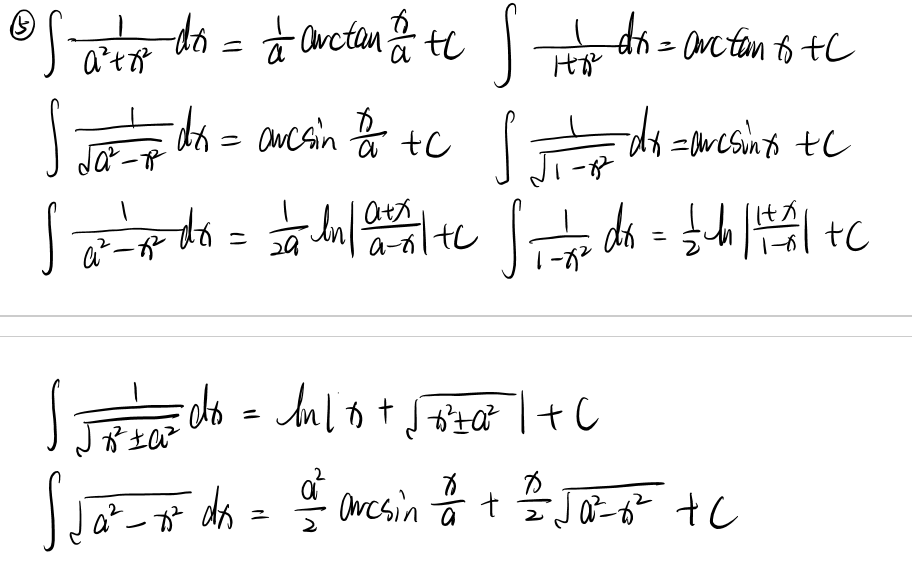 ⑤ ∫ 1/(a²+x²) dx = 1/a arctan x/a + C   ∫ 1/(1+x²) dx = arctan x + C
∫ 1/√(a²−x²) dx = arcsin x/a + C   ∫ 1/√(1−x²) dx = arcsin x + C
∫ 1/(a²−x²) dx = 1/(2a) ln|(a+x)/(a−x)| + C   ∫ 1/(1−x²) dx = 1/2 ln|(1+x)/(1−x)| + C
∫ 1/√(x²±a²) dx = ln|x + √(x²±a²)| + C
∫ √(a²−x²) dx = a²/2 arcsin x/a + x/2 √(a²−x²) + C